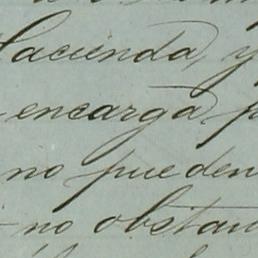 Hacienda, y
encarga p
no pueden
no obstan